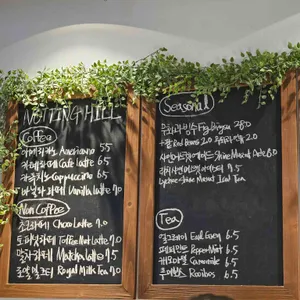 NOTTING HILL
Coffee
아메리카노 Americano 5.5
카페라떼 Cafe Latte 6.5
카푸치노 Cappuccino 6.5
바닐라라떼 Vanilla Latte 7.0
Non Coffee
초코라떼 Choco Latte 7.0
토피넛라떼 Toffee Nut Latte 7.0
말차라떼 Matcha Latte 7.5
로얄밀크티 Royal Milk Tea 7.0
Seasonal
무화과빙수 Fig Bingsu 28.0
팥 Red Beans 2.0
샤인머스켓에이드 Shine Muscat Ade 8.0
Shine Muscat Iced Tea
Tea
얼그레이 Earl Grey 6.5
페퍼민트 PepperMint 6.5
캐모마일 Camomile 6.5
루이보스 Rooibos 6.5